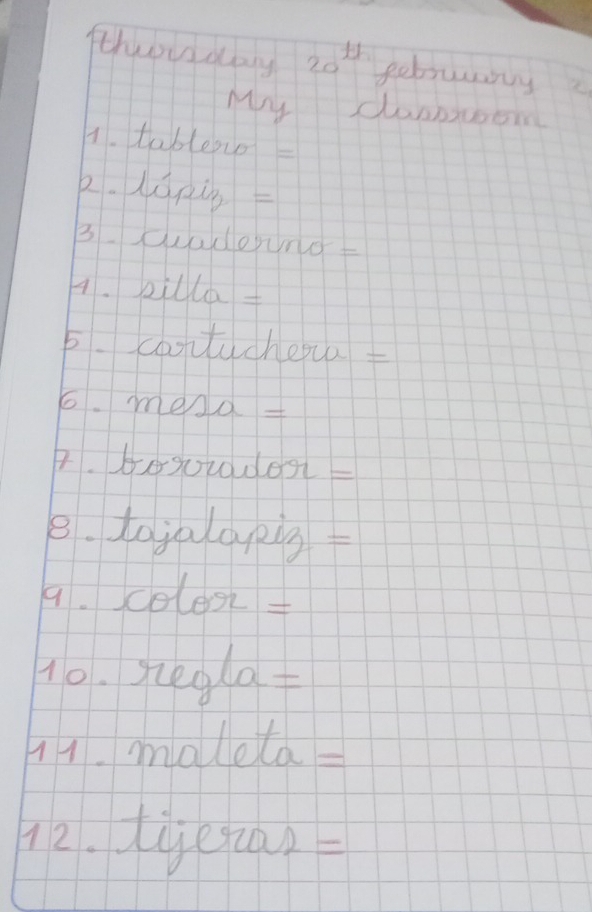 thursday 20th february
My classroom
1. tablero =
2. lápiz =
3. cuaderno =
4. silla =
5. cartuchera =
6. mesa =
7. borrador =
8. tajalapiz =
9. color =
10. regla =
11. maleta =
12. tijeras =